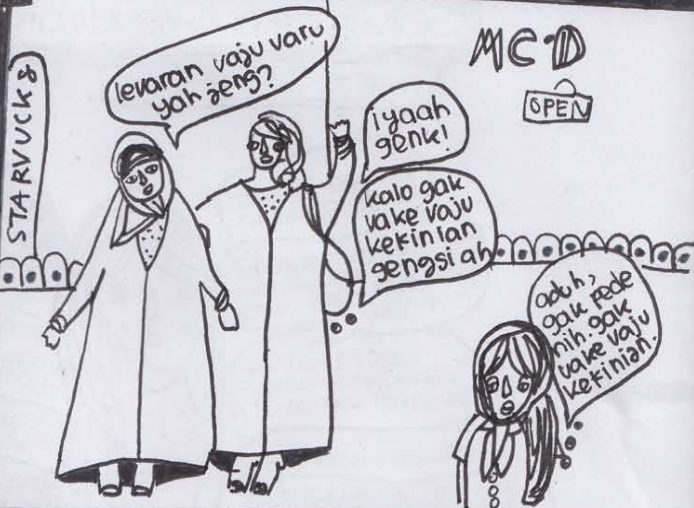 STARVUCKS
levaran vaju varu
yah jeng?
MC•D
OPEN
iyaah
genk!
kalo gak
vake vaju
kekinian
gengsi ah
aduh,
gak pede
nih gak
vake vaju
kekinian.